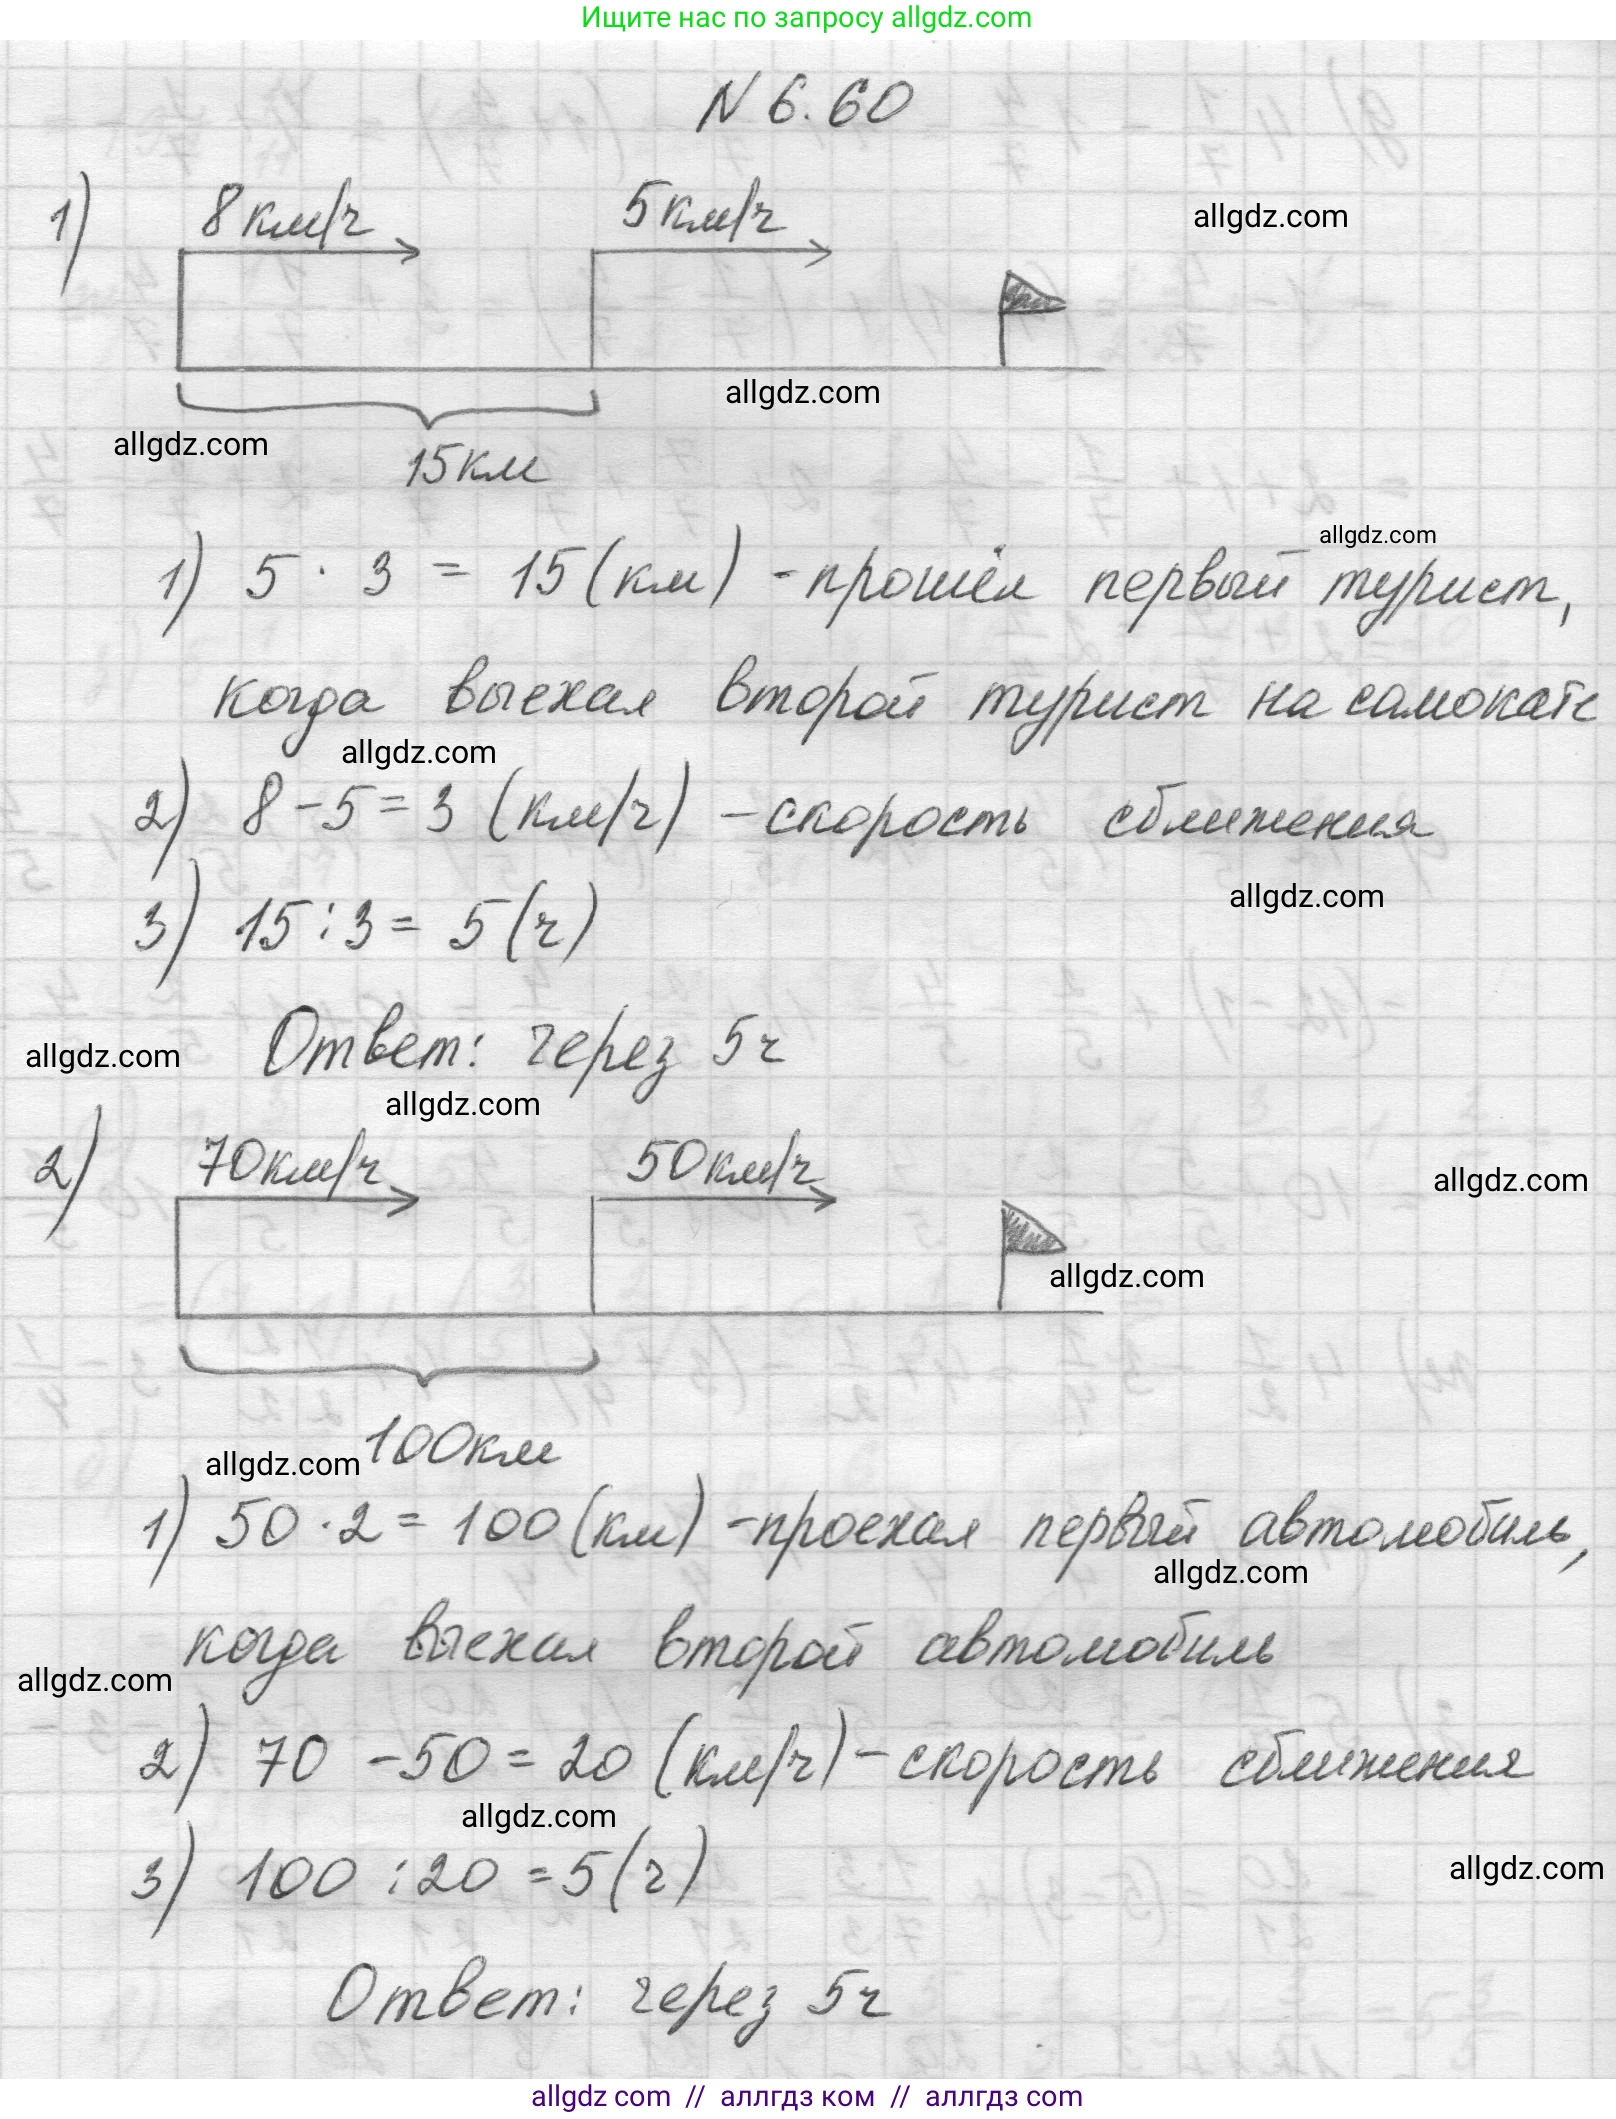 Ищите нас по запросу allgdz.com
N 6.60
1) 8км/ч 5км/ч allgdz.com
allgdz.com
allgdz.com
15км
allgdz.com
1) 5 · 3 = 15 (км) - прошёл первый турист,
когда выехал второй турист на самокате
allgdz.com
2) 8 - 5 = 3 (км/ч) - скорость сближения
allgdz.com
3) 15 : 3 = 5 (ч)
Ответ: через 5ч
allgdz.com
allgdz.com
2) 70км/ч 50км/ч allgdz.com
allgdz.com
100км
allgdz.com
1) 50 · 2 = 100 (км) - проехал первый автомобиль,
allgdz.com
когда выехал второй автомобиль
allgdz.com
2) 70 - 50 = 20 (км/ч) - скорость сближения
allgdz.com
3) 100 : 20 = 5 (ч)
allgdz.com
Ответ: через 5ч
allgdz com // аллгдз ком // аллгдз com